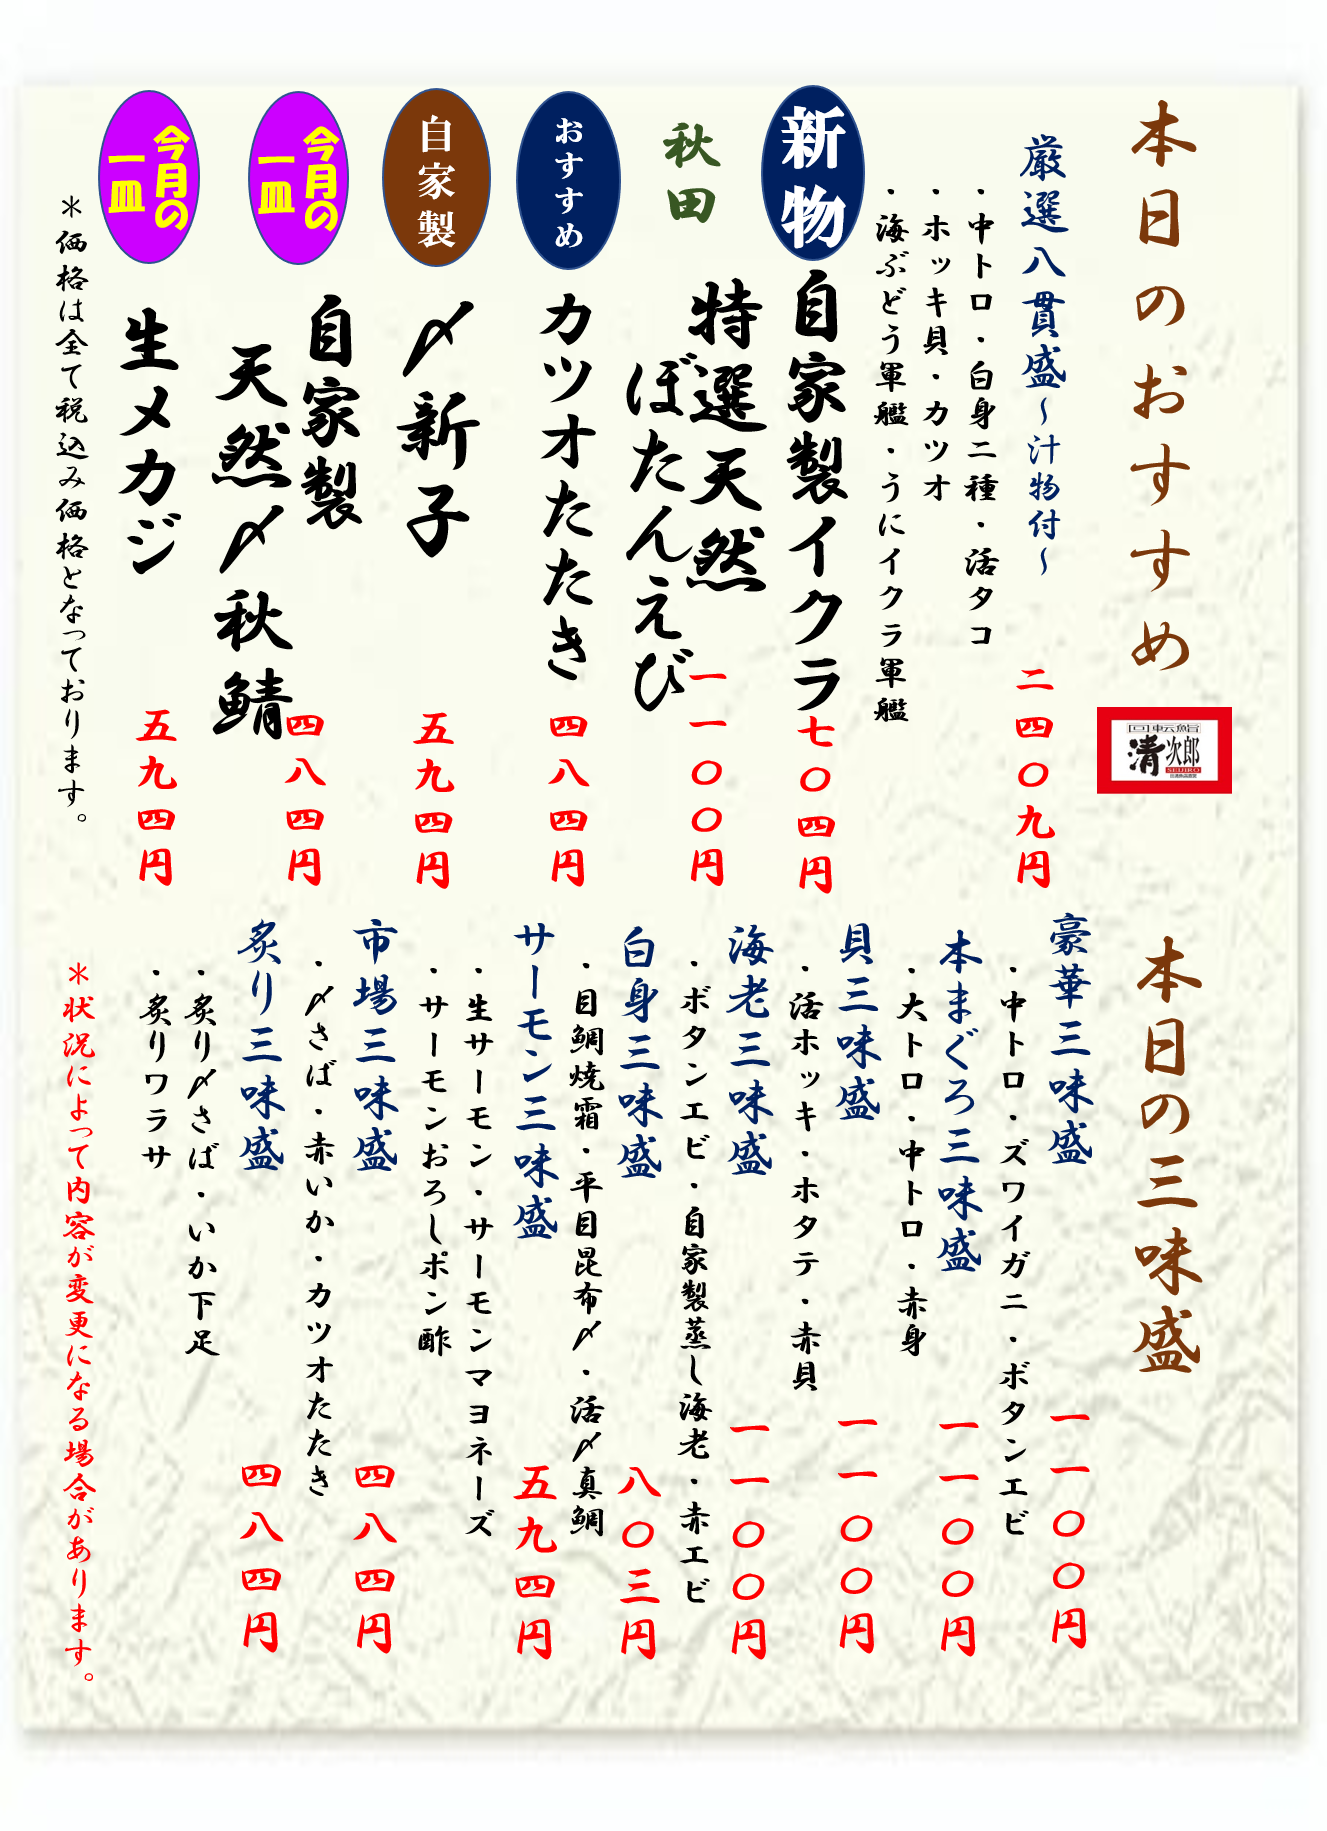 本日のおすすめ
回転鮨
清次郎
SEIJIRO
厳選八貫盛～汁物付～
二四〇九円
・中トロ・白身二種・活タコ
・ホッキ貝・カツオ
・海ぶどう軍艦・うにイクラ軍艦
新物
自家製イクラ
七〇四円
秋田
特選天然
ぼたんえび
一一〇〇円
おすすめ
カツオたたき
四八四円
自家製
〆新子
五九四円
今月の
一皿
自家製
天然〆秋鯖
四八四円
今月の
一皿
生メカジ
五九四円
＊価格は全て税込み価格となっております。
本日の三味盛
豪華三味盛
一一〇〇円
・中トロ・ズワイガニ・ボタンエビ
本まぐろ三味盛
一一〇〇円
・大トロ・中トロ・赤身
貝三味盛
一一〇〇円
・活ホッキ・ホタテ・赤貝
海老三味盛
一一〇〇円
・ボタンエビ・自家製蒸し海老・赤エビ
白身三味盛
八〇三円
・目鯛焼霜・平目昆布〆・活〆真鯛
サーモン三味盛
五九四円
・生サーモン・サーモンマヨネーズ
・サーモンおろしポン酢
市場三味盛
四八四円
・〆さば・赤いか・カツオたたき
炙り三味盛
四八四円
・炙り〆さば・いか下足
・炙りワラサ
＊状況によって内容が変更になる場合があります。